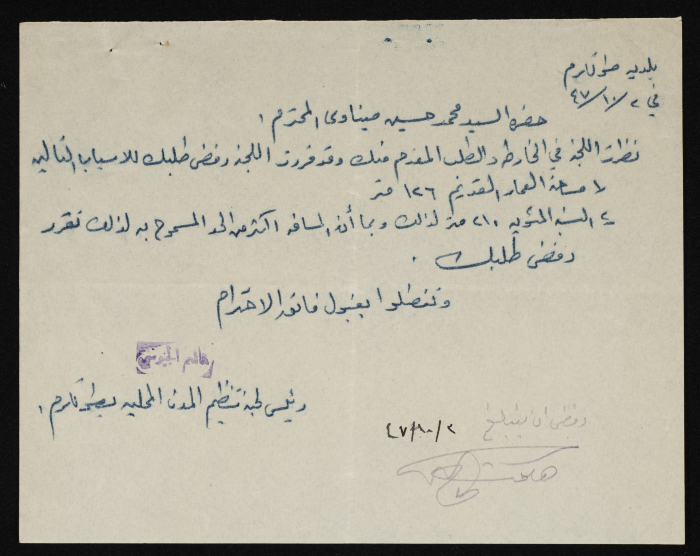 بلدية طولكرم
في ٢/١٠/٤٧
حضرة السيد محمد حسين ميناوي المحترم ؛
نظرت اللجنة في الخارطة والطلب المقدم منك وقد قررت اللجنة رفض طلبك للاسباب التالية
١ مساحة العمار القديم ١٢٦ متر
٢ النسبة المئوية ٢١٠ متر لذلك وبما أن المسافة اكثر من الحد المسموح به لذلك تقرر
رفض طلبك .
وتفضلوا بقبول فائق الاحترام
هاشم الجيوسي
رئيس لجنة تنظيم المدن المحلية بطولكرم ؛
رفض ان يتبلغ
٢/١٠/٤٧